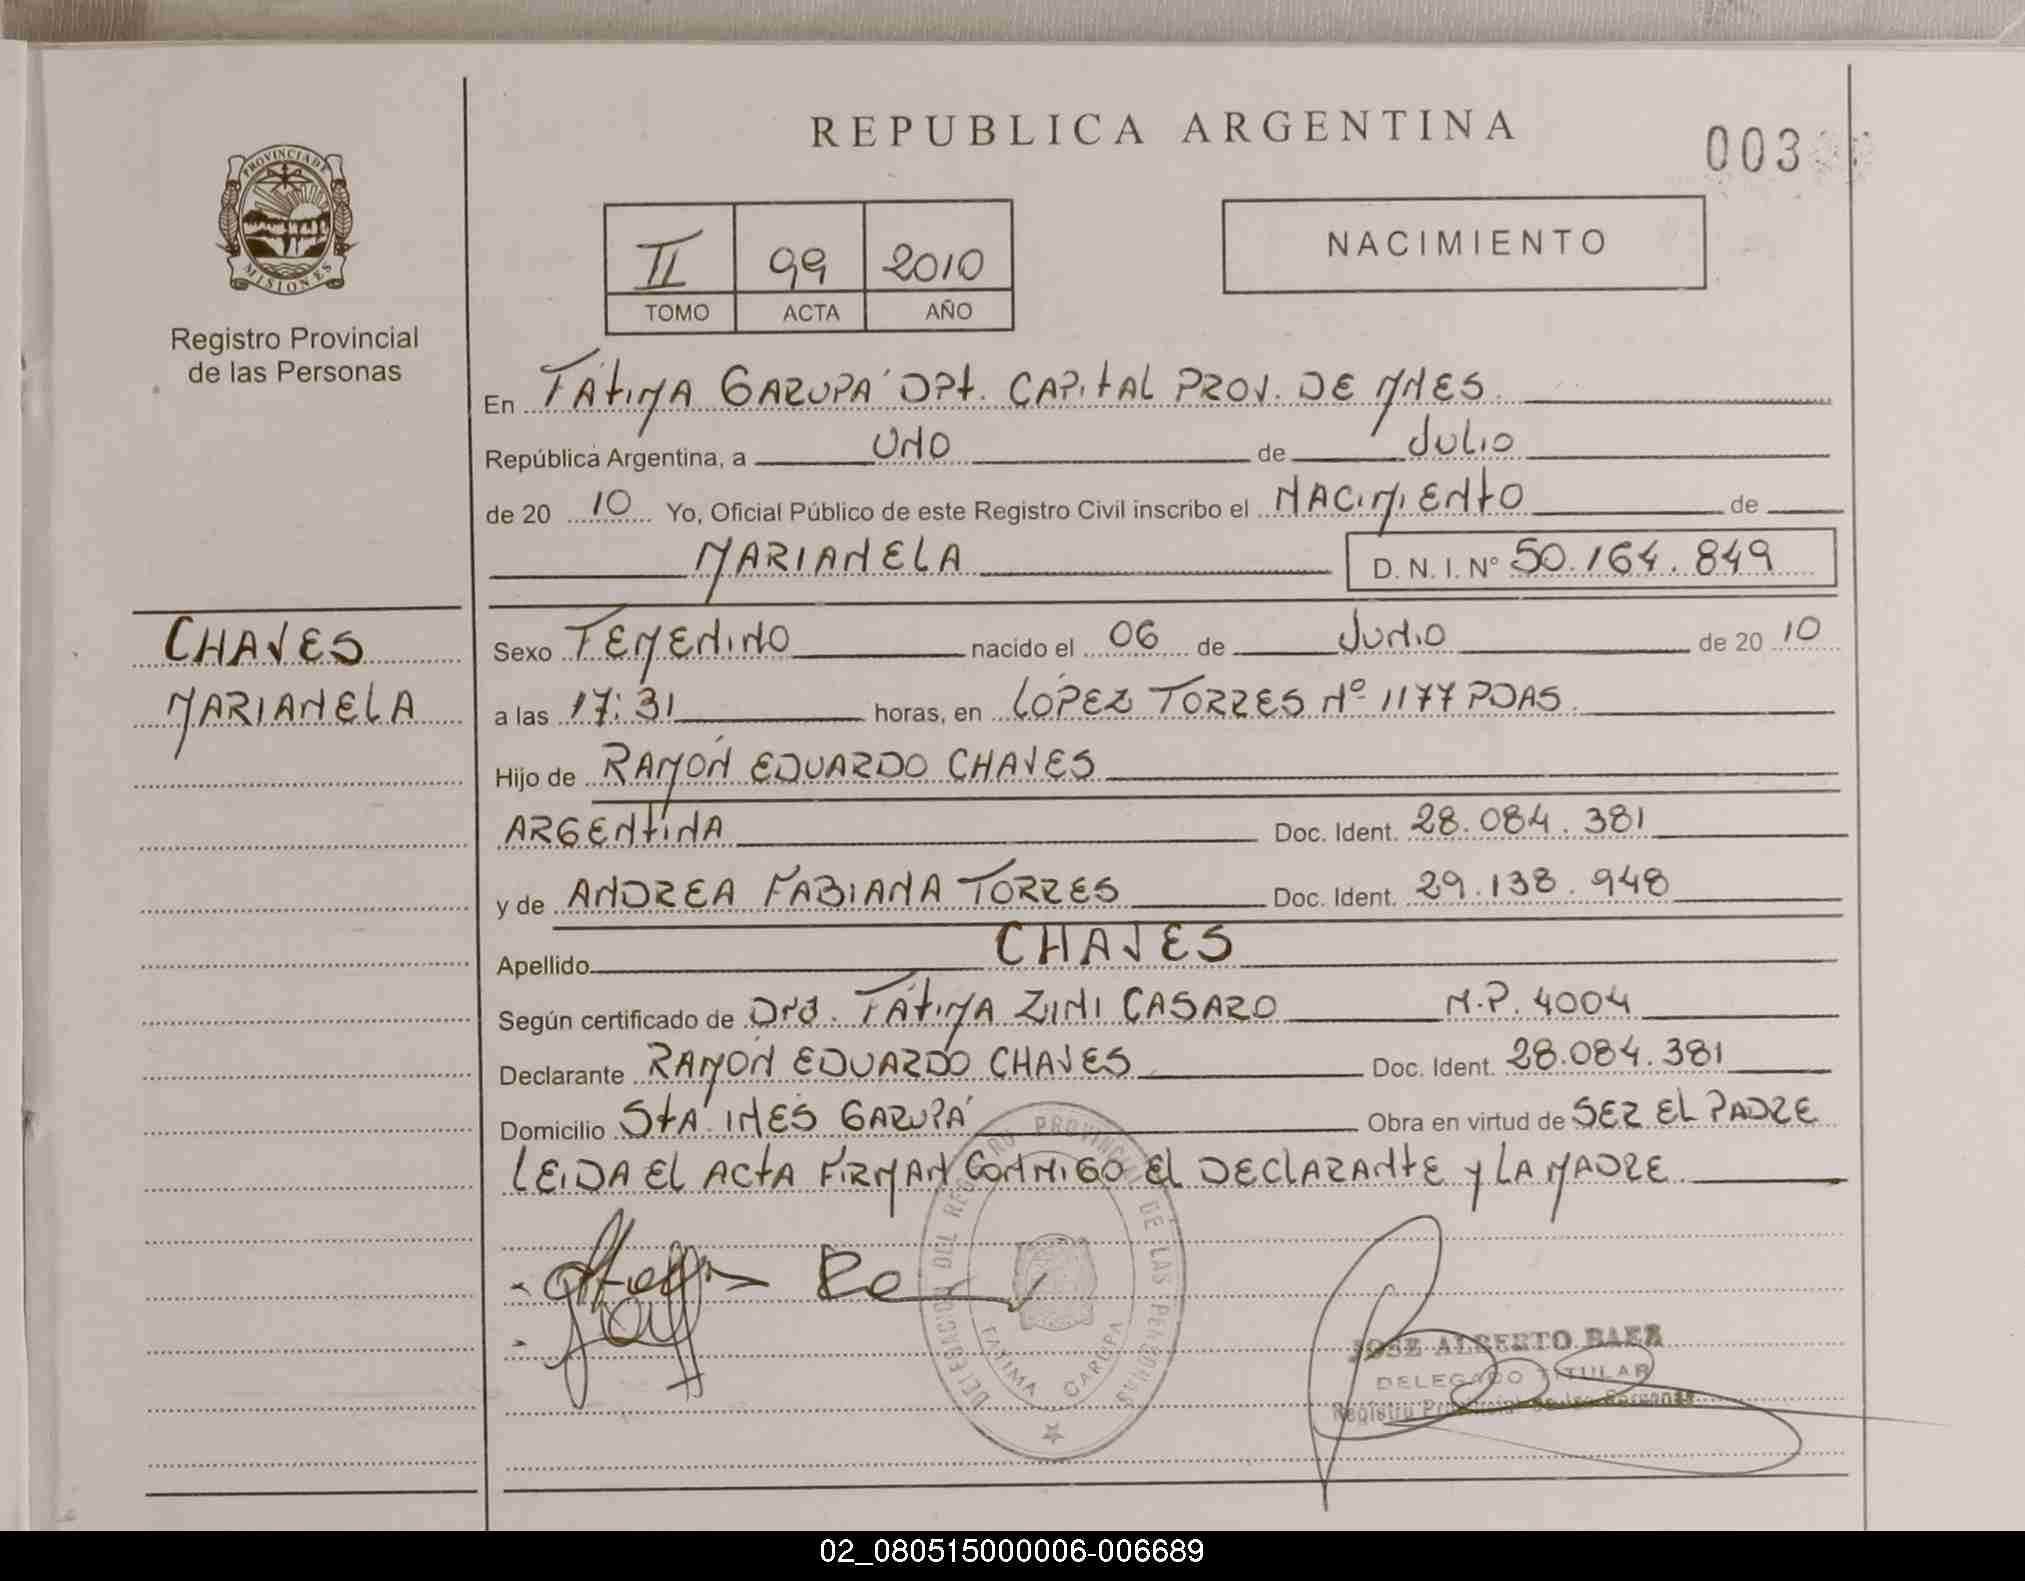 REPUBLICA ARGENTINA
003
PROVINCIA DE
MISIONES
Registro Provincial
de las Personas
II 99 2010
TOMO ACTA AÑO
NACIMIENTO
En FÁtiMA GARUPÁ DPt. CAPitAL PROV. DE MNES.
República Argentina, a UNO de JULIO
de 20 10 Yo, Oficial Público de este Registro Civil inscribo el NACiMiENtO de
MARIANELA D. N. I. Nº 50.164.849
CHAVES
MARIANELA
Sexo FEMENINO nacido el 06 de JUNIO de 20 10
a las 17:31 horas, en LÓPEZ TORRES Nº 1177 PDAS.
Hijo de RAMÓN EDUARDO CHAVES
ARGENtiNA Doc. Ident. 28.084.381
y de ANDREA FABIANA TORRES Doc. Ident. 29.138.948
Apellido CHAVES
Según certificado de Dra. FÁtiMA ZINI CASARO M.P. 4004
Declarante RAMÓN EDUARDO CHAVES Doc. Ident. 28.084.381
Domicilio StA. INÉS GARUPÁ Obra en virtud de SER EL PADRE
LEIDA EL ACtA FIRMAN CONMIGO EL DECLARANtE y LA MADRE
DELEGACION DEL REGISTRO PROVINCIAL DE LAS PERSONAS
FATIMA GARUPA
JOSE ALBERTO BAEZ
DELEGADO TITULAR
Registro Provincial de las Personas
02_080515000006-006689